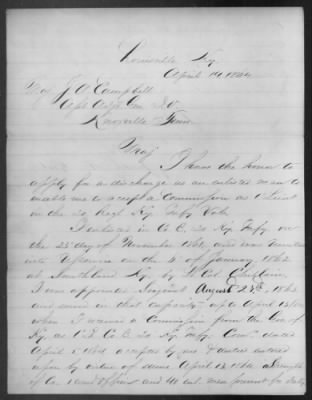 Louisville Ky
April 14, 1864
Maj J. A. Campbell
Asst Adjt Gen
Knoxville Tenn
Maj
I have the honor to
apply for a discharge as an enlisted man to
enable me to accept a Commission as 1 Lieut
in the 20 Regt Ky Infy Vols
I enlisted in Co E, 20 Ky Infy, on
the 25 day of November 1861, and was mustered
into U.S. service on the 6" of January, 1862
at Smithland Ky, by Lt Col
I was appointed Sergeant August 28th, 1862
and served in that capacity up to April 13/64
when I received a Commission from the Gov of
Ky as 1st Lt Co E 20 Ky Infy. Com dated
April 5 1864 accepted by me & duties entered
upon by virtue of same April 13 1864. Strength
of Co 1 and 40 enl. men present for duty